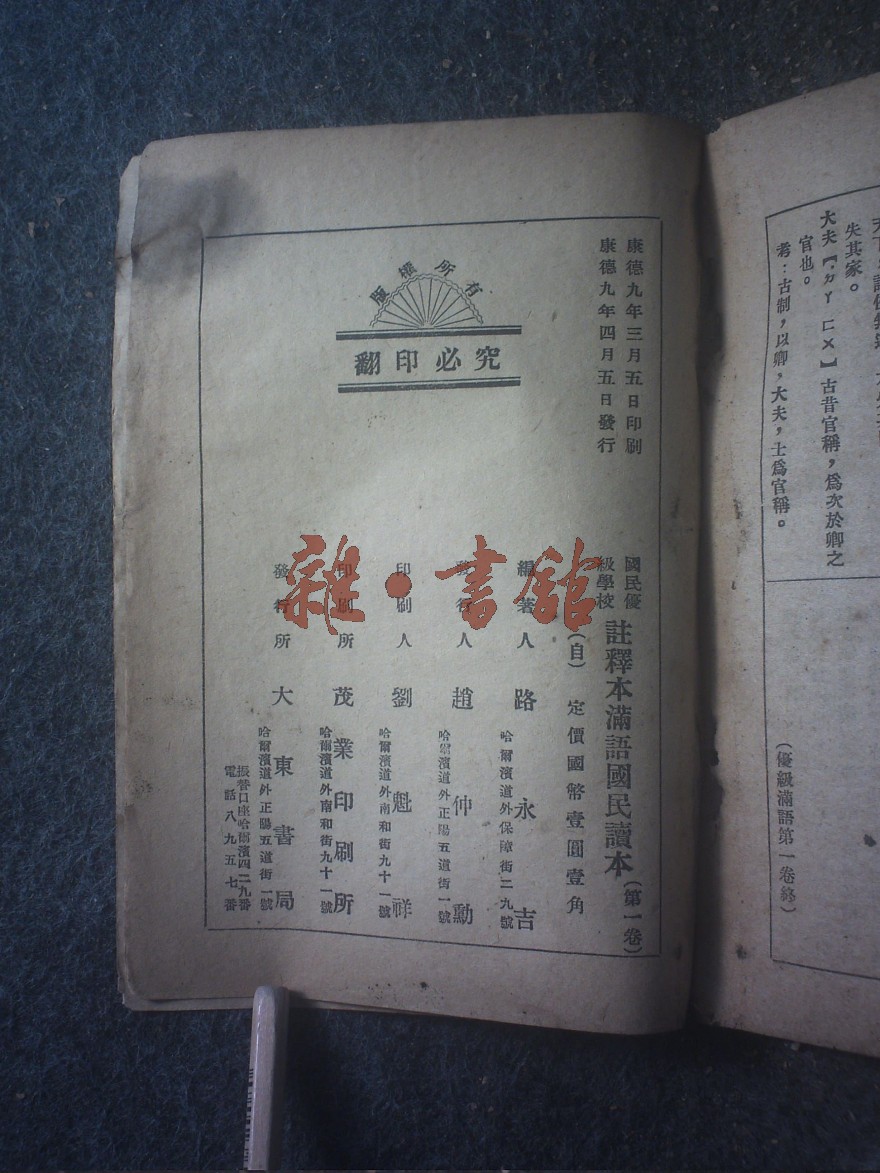 大夫【ㄉㄚ ㄈㄨ】古昔官稱，爲次於卿之
官也。
失其家。
考：古制，以卿，大夫，士爲官稱。
（優級滿語第一卷終）
康德九年三月五日印刷
康德九年四月五日發行
版權所有
翻印必究
國民優級學校 註釋本滿語國民讀本（第一卷）
（自） 定價國幣壹圓壹角
編著人 路永吉
哈爾濱道外保障街二九號
發行人 趙仲勳
哈爾濱道外正陽五道街一號
印刷人 劉魁祥
哈爾濱道外南和街九十一號
印刷所 茂業印刷所
哈爾濱道外南和街九十一號
發行所 大東書局
哈爾濱道外正陽五道街一號
振替口座哈爾濱四二九番
電話八九五七番
雜·書館